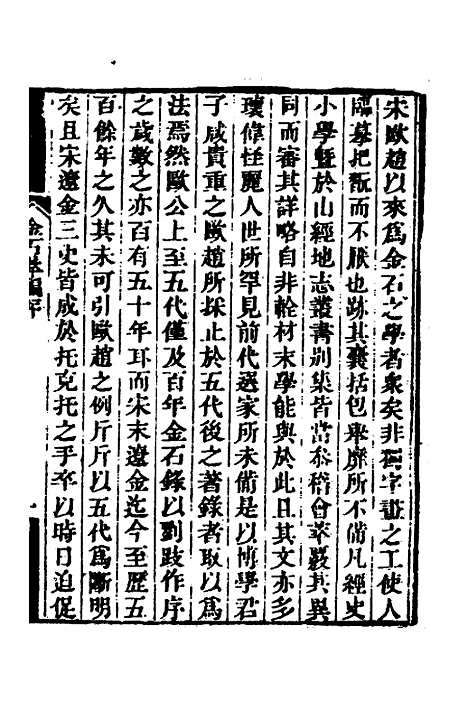 宋歐趙以來爲金石之學者衆矣非獨字畫之工使人
臨摹把翫而不厭也跡其囊括包舉靡所不備凡經史
小學暨於山經地志叢書別集皆當叅稽會萃覈其異
同而審其詳略自非輇材末學能與於此且其文亦多
瓌偉怪麗人世所罕見前代選家所未備是以博學君
子咸貴重之歐趙所採止於五代後之著錄者取以爲
法焉然歐公上至五代僅及百年金石錄以劉跂作序
之歲數之亦百有五十年耳而宋末遼金迄今至歷五
百餘年之久其未可引歐趙之例斤斤以五代爲斷明
矣且宋遼金三史皆成於托克托之手卒以時日迫促
金石萃編序
一